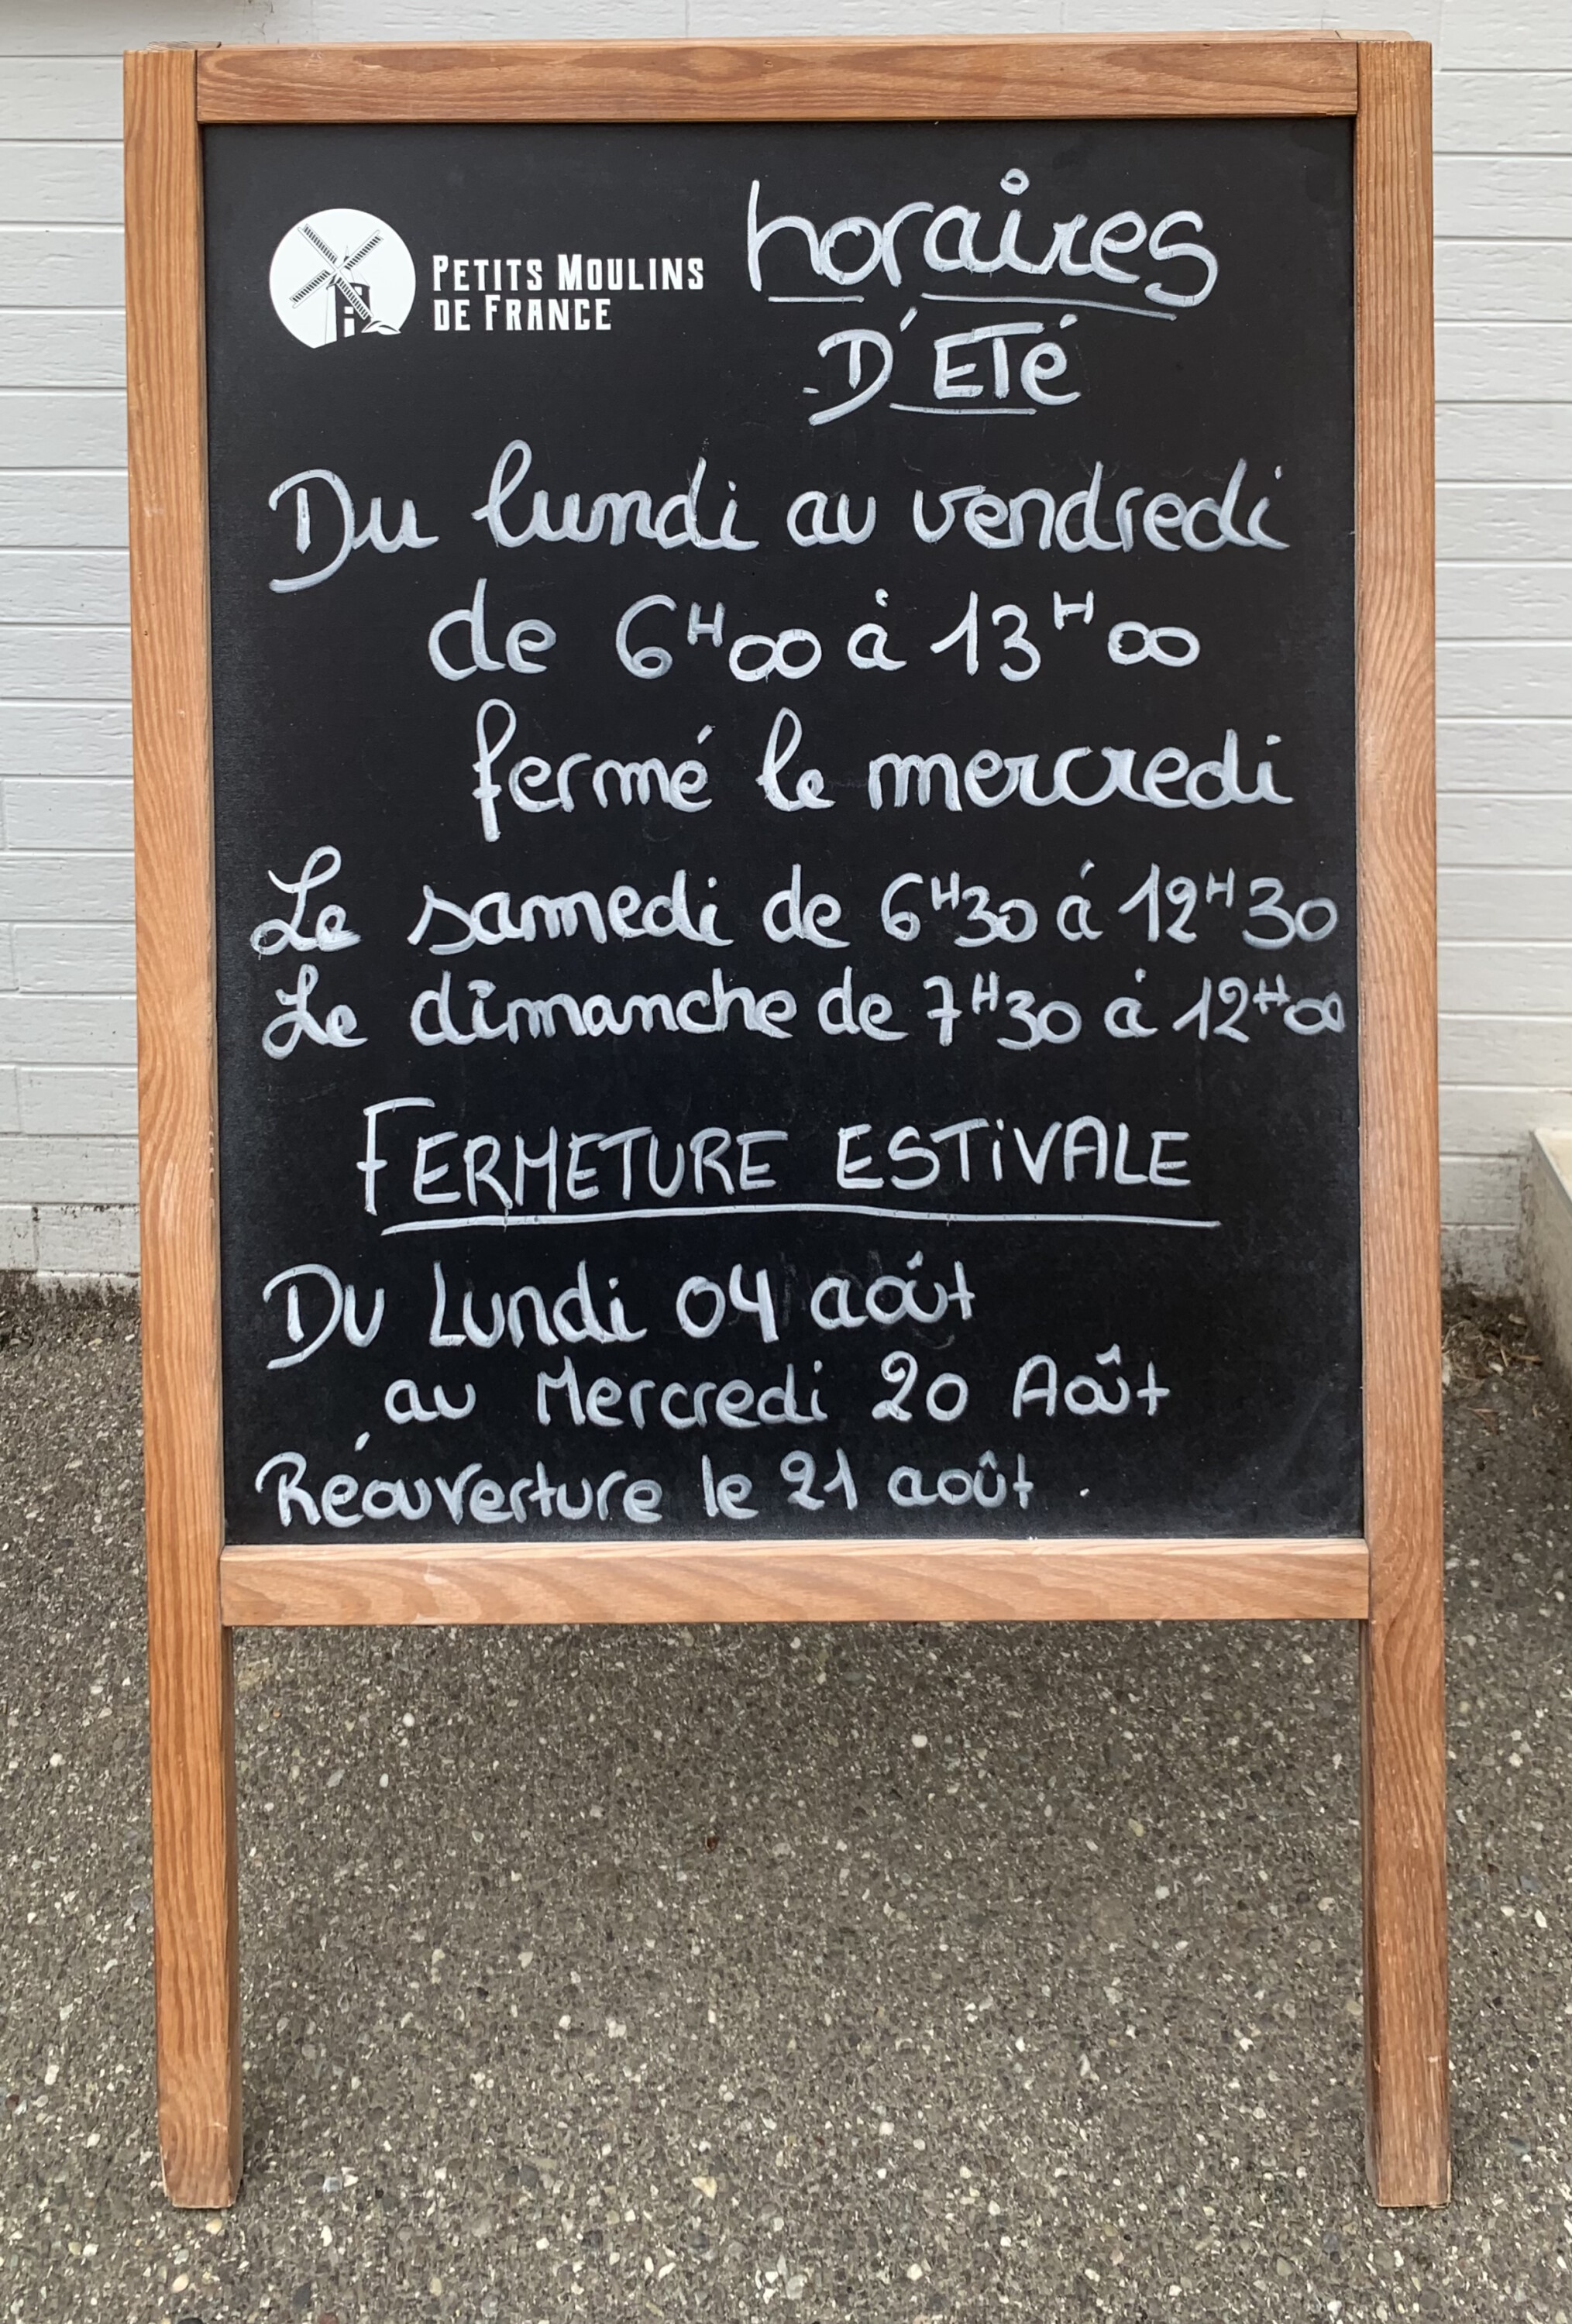 PETITS MOULINS
DE FRANCE
horaires
D'ETé
Du lundi au vendredi
de 6H00 à 13H00
fermé le mercredi
Le samedi de 6H30 à 12H30
Le dimanche de 7H30 à 12H00
FERMETURE ESTiVALE
Du Lundi 04 août
au Mercredi 20 Août
Réouverture le 21 août.